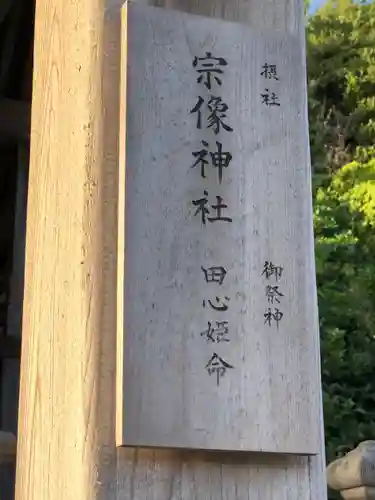 摂社
宗像神社
御祭神
田心姫命